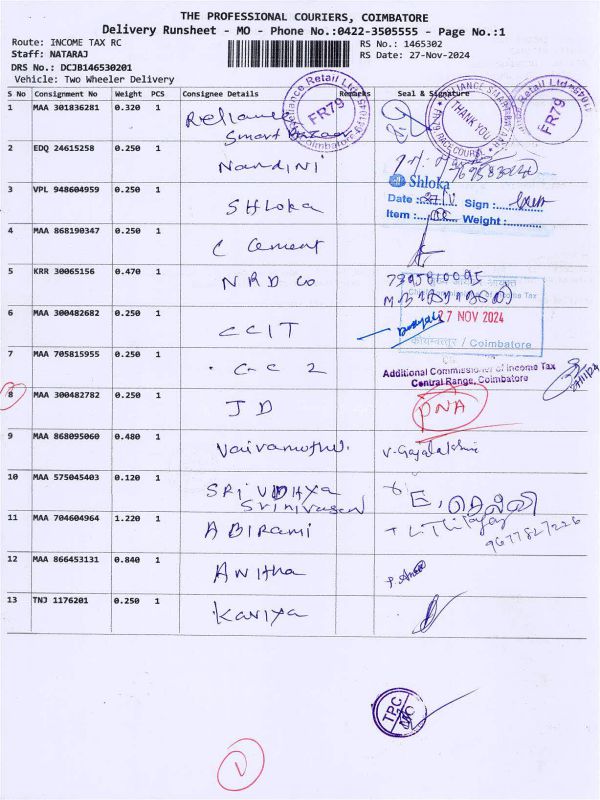 THE PROFESSIONAL COURIERS, COIMBATORE
Delivery Runsheet - MO - Phone No.:0422-3505555 - Page No.:1
Route: INCOME TAX RC
RS No.: 1465302
Staff: NATARAJ
RS Date: 27-Nov-2024
DRS No.: DCJB146530201
Vehicle: Two Wheeler Delivery
S No Consignment No Weight PCS Consignee Details Remarks Seal & Signature
1 MAA 301836281 0.320 1 Reliance
Smart Bazaar
Reliance Retail Ltd
FR79
Coimbatore
THANK YOU
RACE COURSE
FR79
2 EDQ 24615258 0.250 1 Nandini
3 VPL 948604959 0.250 1 Shloka
Shloka
Date : Sign :
Item : Weight :
4 MAA 868190347 0.250 1 C Cement
5 KRR 30065156 0.470 1 NRD Co 7395810095
6 MAA 300482682 0.250 1 CCIT
27 NOV 2024
कोयम्बत्तूर / Coimbatore
7 MAA 705815955 0.250 1 CC 2
Additional Commissioner of Income Tax
Central Range, Coimbatore
8 MAA 300482782 0.250 1 JD PNA
9 MAA 868095060 0.480 1 V. Gayalakshmi
10 MAA 575045403 0.120 1 SRI VIDHYA
Srinivasan
11 MAA 704604964 1.220 1 ABIRAMI
9677827226
12 MAA 866453131 0.840 1 Anitha
13 TNJ 1176201 0.250 1 Kaviya
TPC
MO